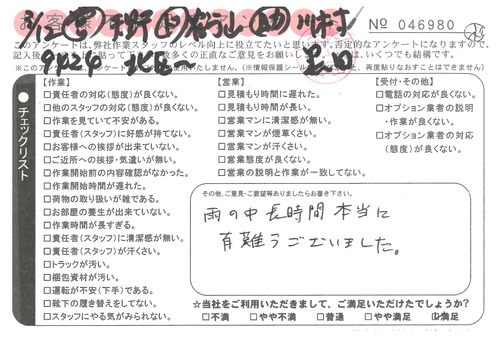 No 046980
このアンケートは、弊社作業スタッフのレベル向上に役立てたいと思います。否定的なアンケートになりますので、
チェックリスト
【作業】
□責任者の対応(態度)が良くない。
□他のスタッフの対応(態度)が良くない。
□作業を見ていて不安がある。
□責任者(スタッフ)に好感が持てない。
□お客様への挨拶が出来ていない。
□ご近所への挨拶・気遣いが無い。
□作業開始前の内容確認がなかった。
□作業開始時間が遅れた。
□荷物の取り扱いが雑である。
□お部屋の養生が出来ていない。
□作業時間が長すぎる。
□責任者(スタッフ)に清潔感が無い。
□責任者(スタッフ)が汗くさい。
□トラックが汚い。
□梱包資材が汚い。
□運転が不安(下手)である。
□靴下の履き替えをしてない。
□スタッフにやる気がみられない。
【営業】
□見積もり時間に遅れた。
□見積もり時間が長い。
□営業マンに清潔感が無い。
□営業マンが煙草くさい。
□営業マンが汗くさい。
□営業態度が良くない。
□営業の説明と作業が一致してない。
【受付・その他】
□電話の対応が良くない。
□オプション業者の説明
・作業が良くない。
□オプション業者の対応
(態度)が良くない。
その他、ご意見・ご要望等ありましたらお書き下さい。
雨の中長時間本当に
有難うございました。
☆当社をご利用いただきまして、ご満足いただけたでしょうか?
□不満 □やや不満 □普通 □やや満足 □満足